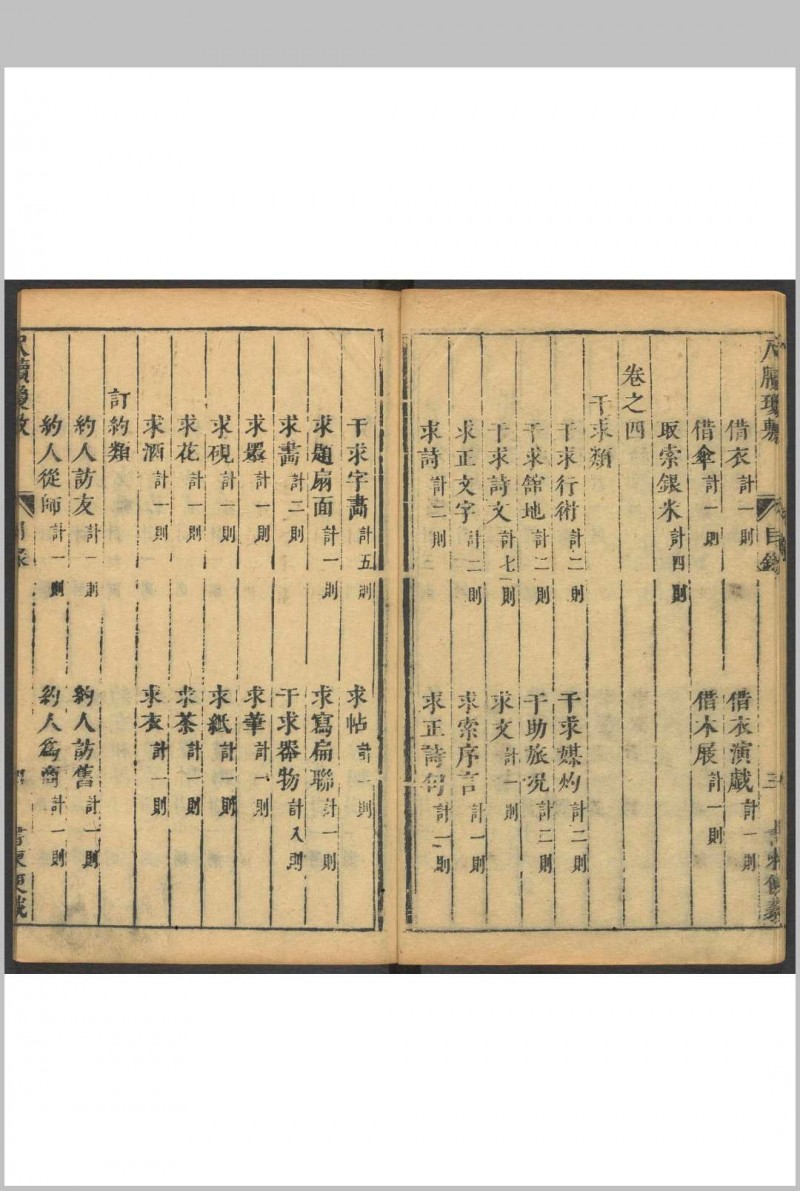 目錄
借衣 計一則 借衣演戲 計一則
借傘 計一則 借木屐 計一則
取索銀米 計四則
卷之四
干求類
干求行術 計二則 干求媒妁 計二則
干求館地 計二則 干助旅況 計二則
干求詩文 計七則 求文 計一則
求正文字 計二則 求索序言 計一則
求詩 計二則 求正詩句 計一則
干求字畵 計五則 求帖 計一則
求題扇面 計一則 求寫扁聯 計一則
求畵 計二則 干求器物 計入則
求墨 計一則 求筆 計一則
求硯 計一則 求紙 計一則
求花 計一則 求茶 計一則
求酒 計一則 求衣 計一則
訂約類
約人訪友 計一則 約人訪舊 計一則
約人從師 計一則 約人爲商 計一則